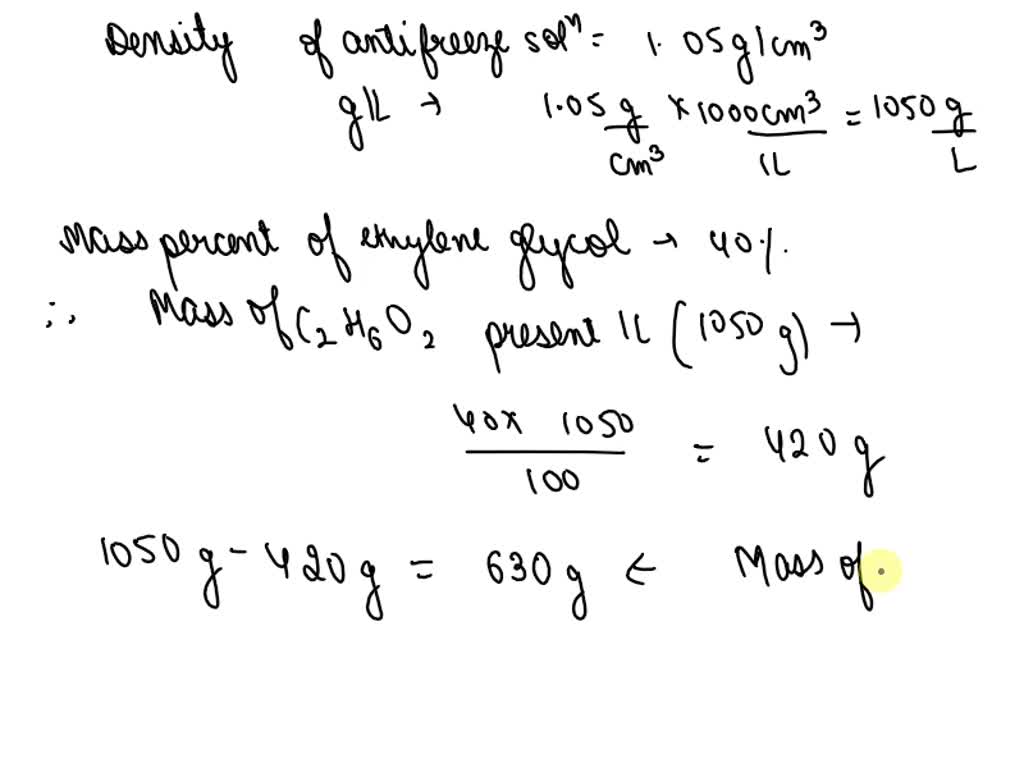 Density of antifreeze solⁿ = 1.05 g/cm³
g/L → 1.05 g/cm³ × 1000 cm³/1L = 1050 g/L
Mass percent of ethylene glycol → 40%.
∴ Mass of C₂H₆O₂ present 1L (1050 g) →
40 × 1050/100 = 420 g
1050 g - 420 g = 630 g ← Mass of